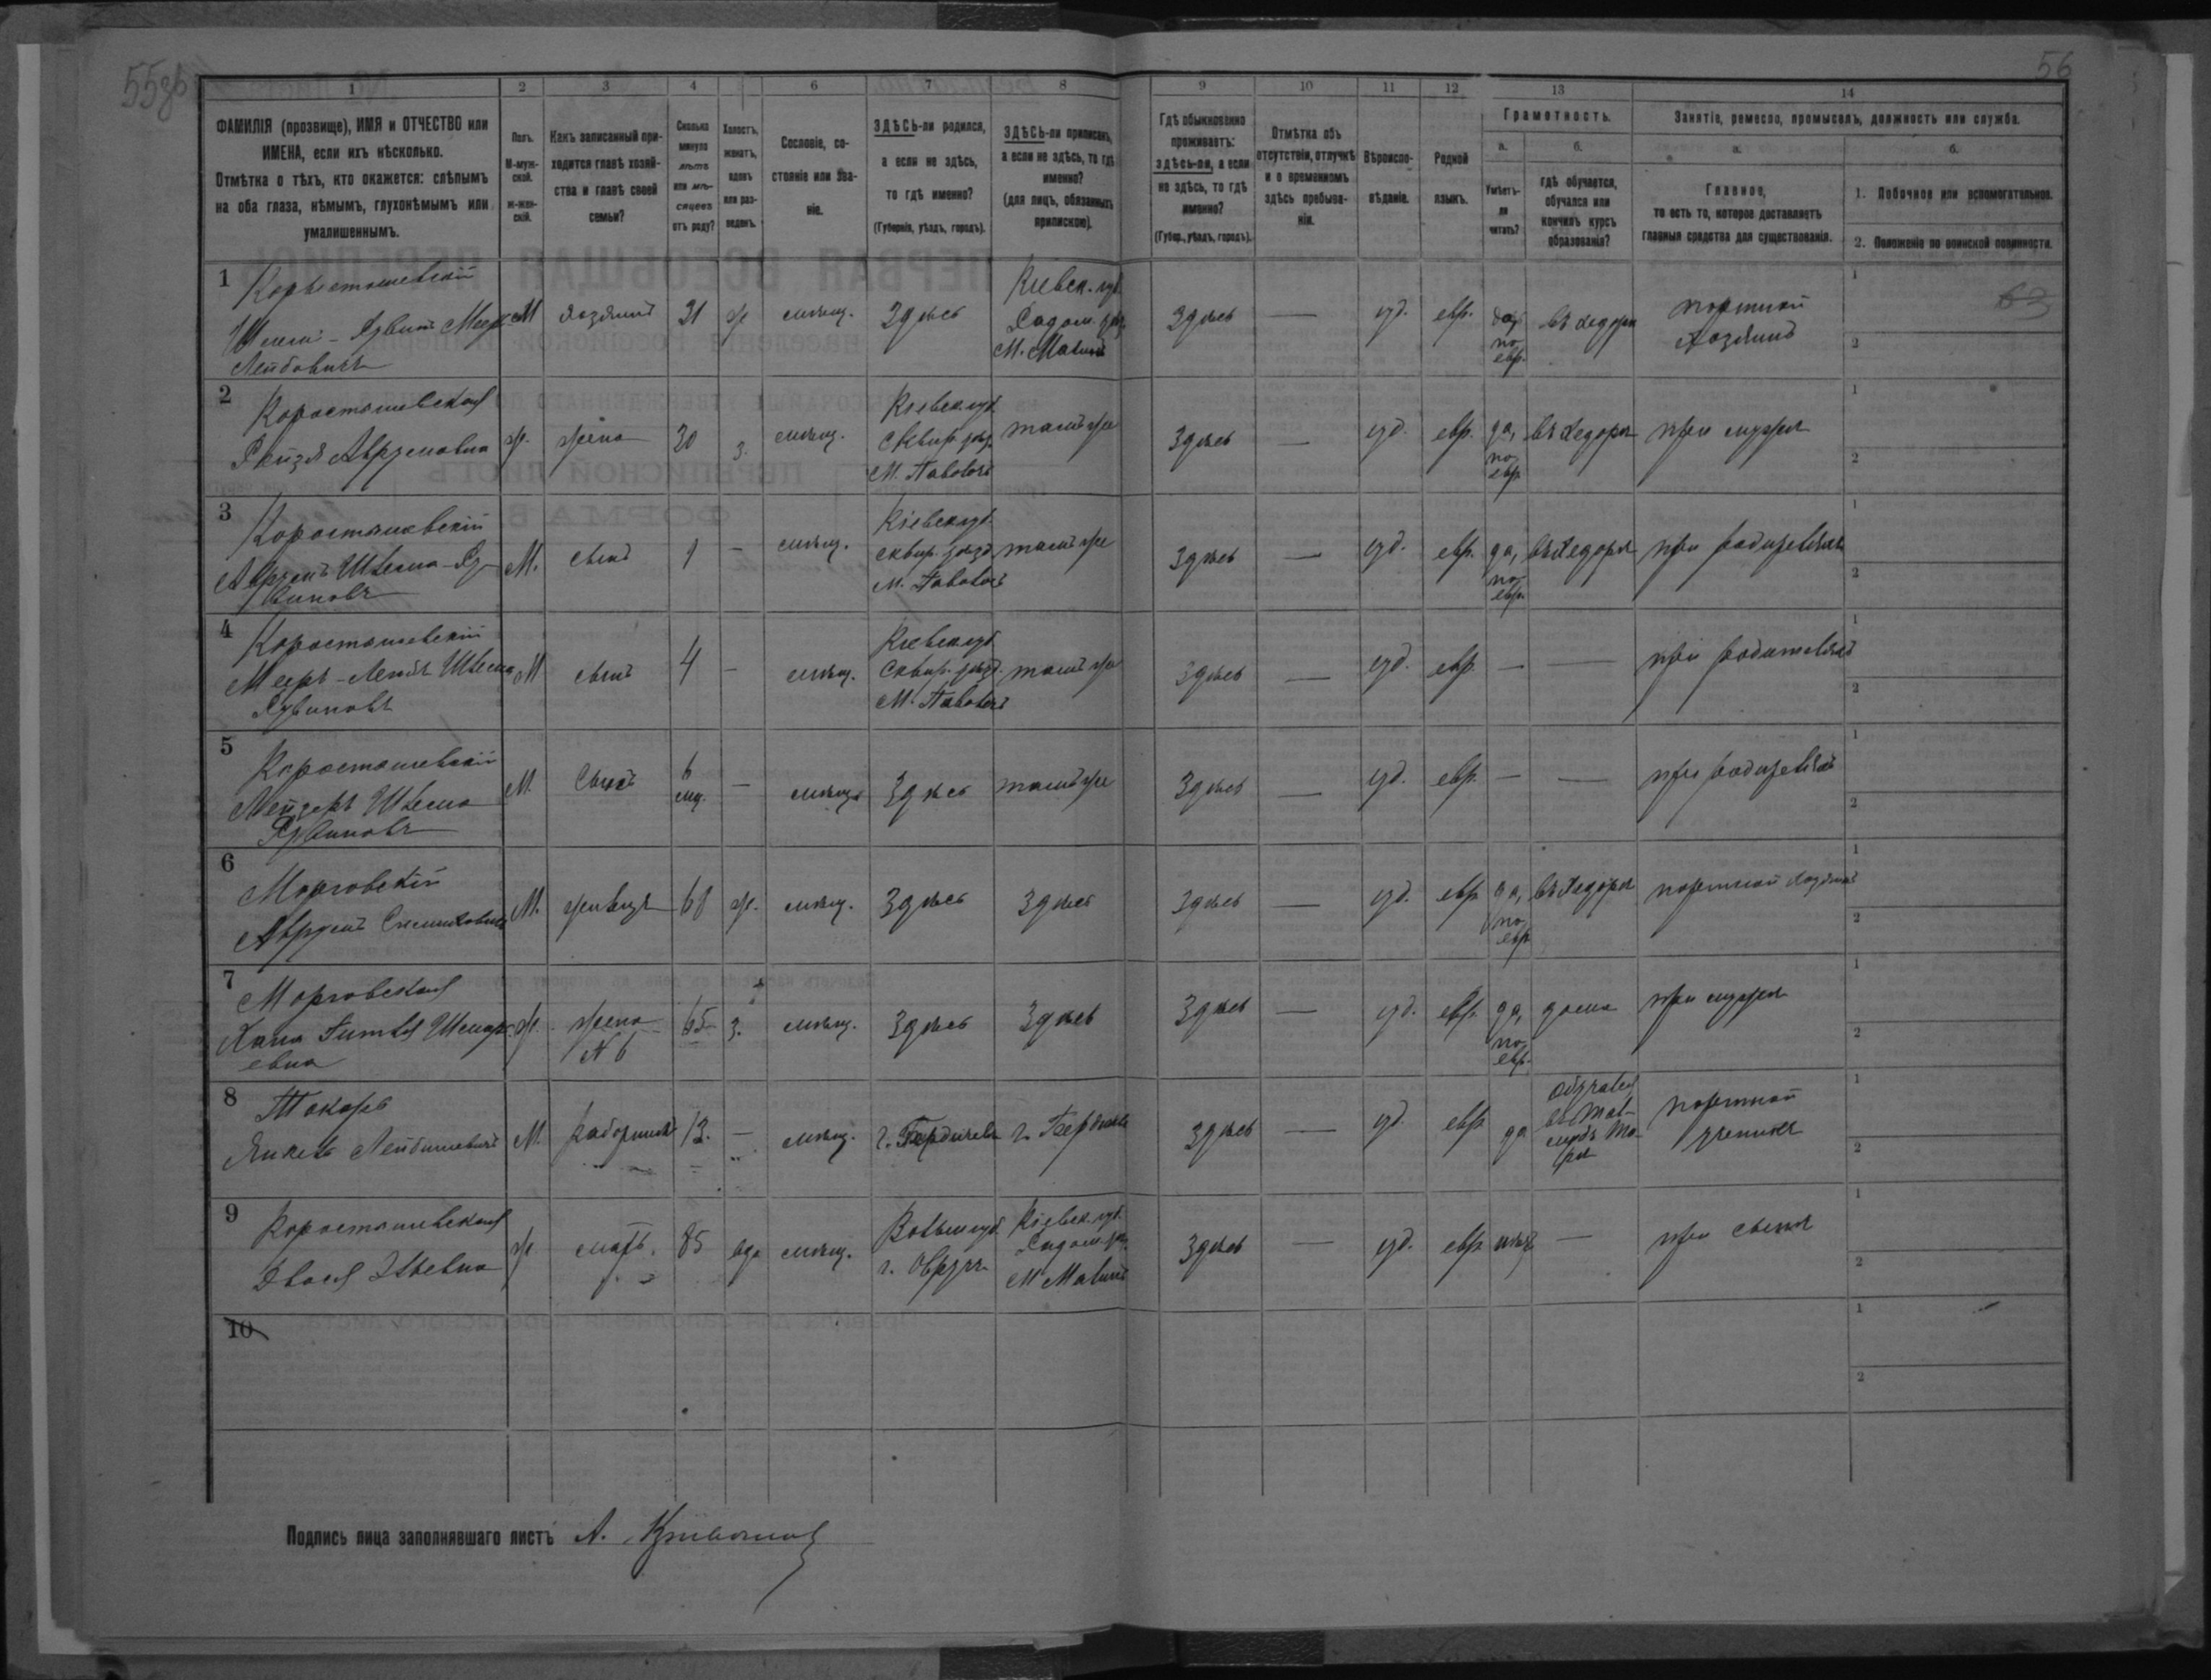 55зв
56
1
2
3
4
6
7
8
9
10
11
12
13
14
ФАМИЛІЯ (прозвище), ИМЯ и ОТЧЕСТВО или
ИМЕНА, если ихъ нѣсколько.
Отмѣтка о тѣхъ, кто окажется: слѣпымъ
на оба глаза, нѣмымъ, глухонѣмымъ или
умалишеннымъ.
Полъ.
М-муж-
ской.
ж-жен-
скій.
Какъ записанный при-
ходится главѣ хозяй-
ства и главѣ своей
семьи?
Сколько
минуло
лѣтъ
или мѣ-
сяцевъ
отъ роду?
Холостъ,
женатъ,
вдовъ
или раз-
веденъ.
Сословіе, со-
стояніе или зва-
ніе.
ЗДѢСЬ-ли родился,
а если не здѣсь,
то гдѣ именно?
(Губернія, уѣздъ, городъ).
ЗДѢСЬ-ли приписанъ,
а если не здѣсь, то гдѣ
именно?
(для лицъ, обязанныхъ
припискою).
Гдѣ обыкновенно
проживаетъ:
здѣсь-ли, а если
не здѣсь, то гдѣ
именно?
(Губер., уѣздъ, городъ).
Отмѣтка объ
отсутствіи, отлучкѣ
и о временномъ
здѣсь пребыва-
ніи.
Вѣроиспо-
вѣданіе.
Родной
языкъ.
Грамотность.
а.
Умѣетъ-
ли
читать?
б.
гдѣ обучается,
обучался или
кончилъ курсъ
образованія?
Занятіе, ремесло, промыселъ, должность или служба.
а.
Главное,
то есть то, которое доставляетъ
главныя средства для существованія.
б.
1. Побочное или вспомогательное.
2. Положеніе по воинской повинности.
1
Коростышевскій
Лейбовичъ
М
хозяинъ
31
ж
мѣщ.
Здѣсь
Кіевск. губ.
Радом. уѣз.
М. Малинъ
Здѣсь
—
іуд.
евр.
да,
по
евр.
въ хедерѣ
портной
хозяинъ
1
2
2
Коростышевская
Рейзя Аврумовна
ж.
жена
30
з.
мѣщ.
Кіевск. губ.
Сквир. уѣзд.
М. Паволочь
тамъ же
Здѣсь
—
іуд.
евр.
да,
по
евр.
въ хедерѣ
при мужѣ
1
2
3
Коростышевскій
М.
сынъ
—
мѣщ.
Кіевск. губ.
Сквир. уѣзд.
М. Паволочь
тамъ же
Здѣсь
—
іуд.
евр.
да,
по
евр.
въ хедерѣ
при родителяхъ
1
2
4
Коростышевскій
М
сынъ
4
—
мѣщ.
Кіевск. губ.
Сквир. уѣзд.
М. Паволочь
тамъ же
Здѣсь
—
іуд.
евр.
—
—
при родителяхъ
1
2
5
Коростышевскій
М.
сынъ
6
мѣс.
—
мѣщ.
Здѣсь
тамъ же
Здѣсь
—
іуд.
евр.
—
—
при родителяхъ
1
2
6
Аврумъ
М.
жилецъ
68
ж.
мѣщ.
Здѣсь
Здѣсь
Здѣсь
—
іуд.
евр.
да,
по
евр.
въ хедерѣ
портной хозяинъ
1
2
7
Хана Гитля
евна
ж.
жена
№ 6
65
з.
мѣщ.
Здѣсь
Здѣсь
Здѣсь
—
іуд.
евр.
да,
по
евр.
дома
при мужѣ
1
2
8
Токарь
Янкель Лейбишевичъ
М.
работникъ
13.
—
мѣщ.
г. Бердичевъ
г. Бердичевъ
Здѣсь
—
іуд.
евр.
да
обучался
въ Тал-
мудъ То-
рѣ
портной
ученикъ
1
2
9
Коростышевская
Двося
ж
мать.
85
вдо
мѣщ.
Волын. губ.
г. Овручъ
Кіевск. губ.
Радом. уѣз.
М Малинъ
Здѣсь
—
іуд.
евр.
нѣтъ
—
при сынѣ
1
2
10
1
2
Подпись лица заполнявшаго листъ А.